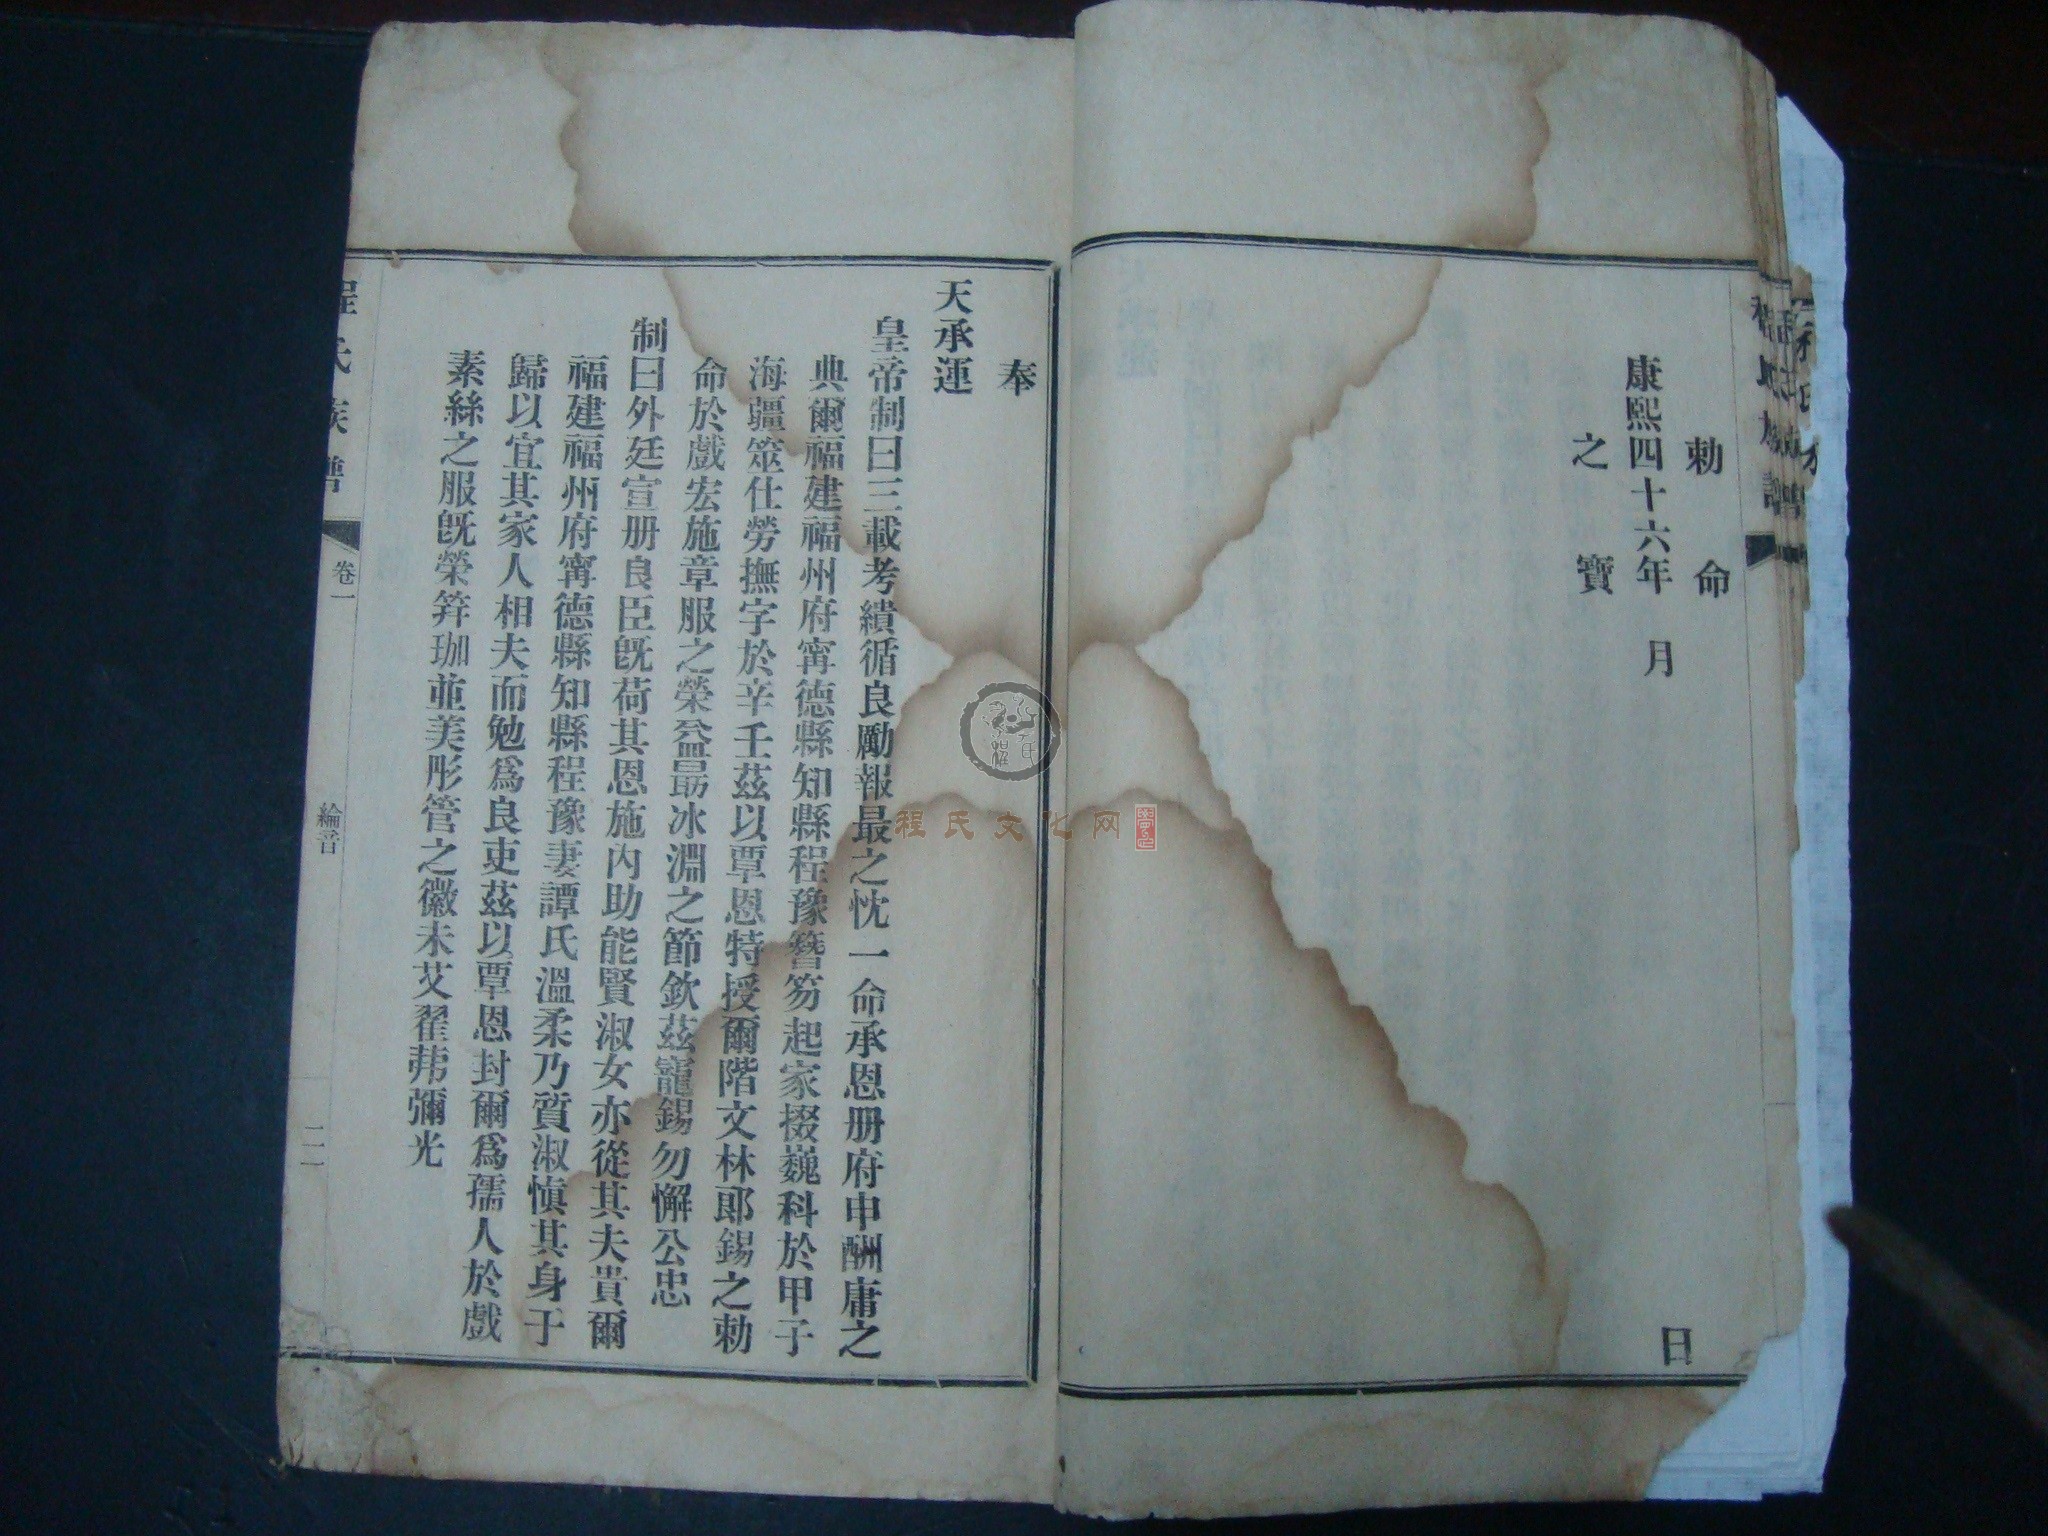 程氏族譜
勅命
康熙四十六年 月 日
之寶
奉
天承運
皇帝制曰三載考績循良勵報最之忱一命承恩册府申酬庸之
典爾福建福州府甯德縣知縣程豫簪笏起家掇巍科於甲子
海疆筮仕勞撫字於辛壬茲以覃恩特授爾階文林郎錫之勅
命於戲宏施章服之榮益勗冰淵之節欽茲寵錫勿懈公忠
制曰外廷宣册良臣旣荷其恩施內助能賢淑女亦從其夫貴爾
福建福州府甯德縣知縣程豫妻譚氏溫柔乃質淑愼其身于
歸以宜其家人相夫而勉爲良吏茲以覃恩封爾爲孺人於戲
素絲之服旣榮笄珈並美彤管之徽未艾翟茀彌光
程氏族譜
卷一
綸音
二
程氏文化网